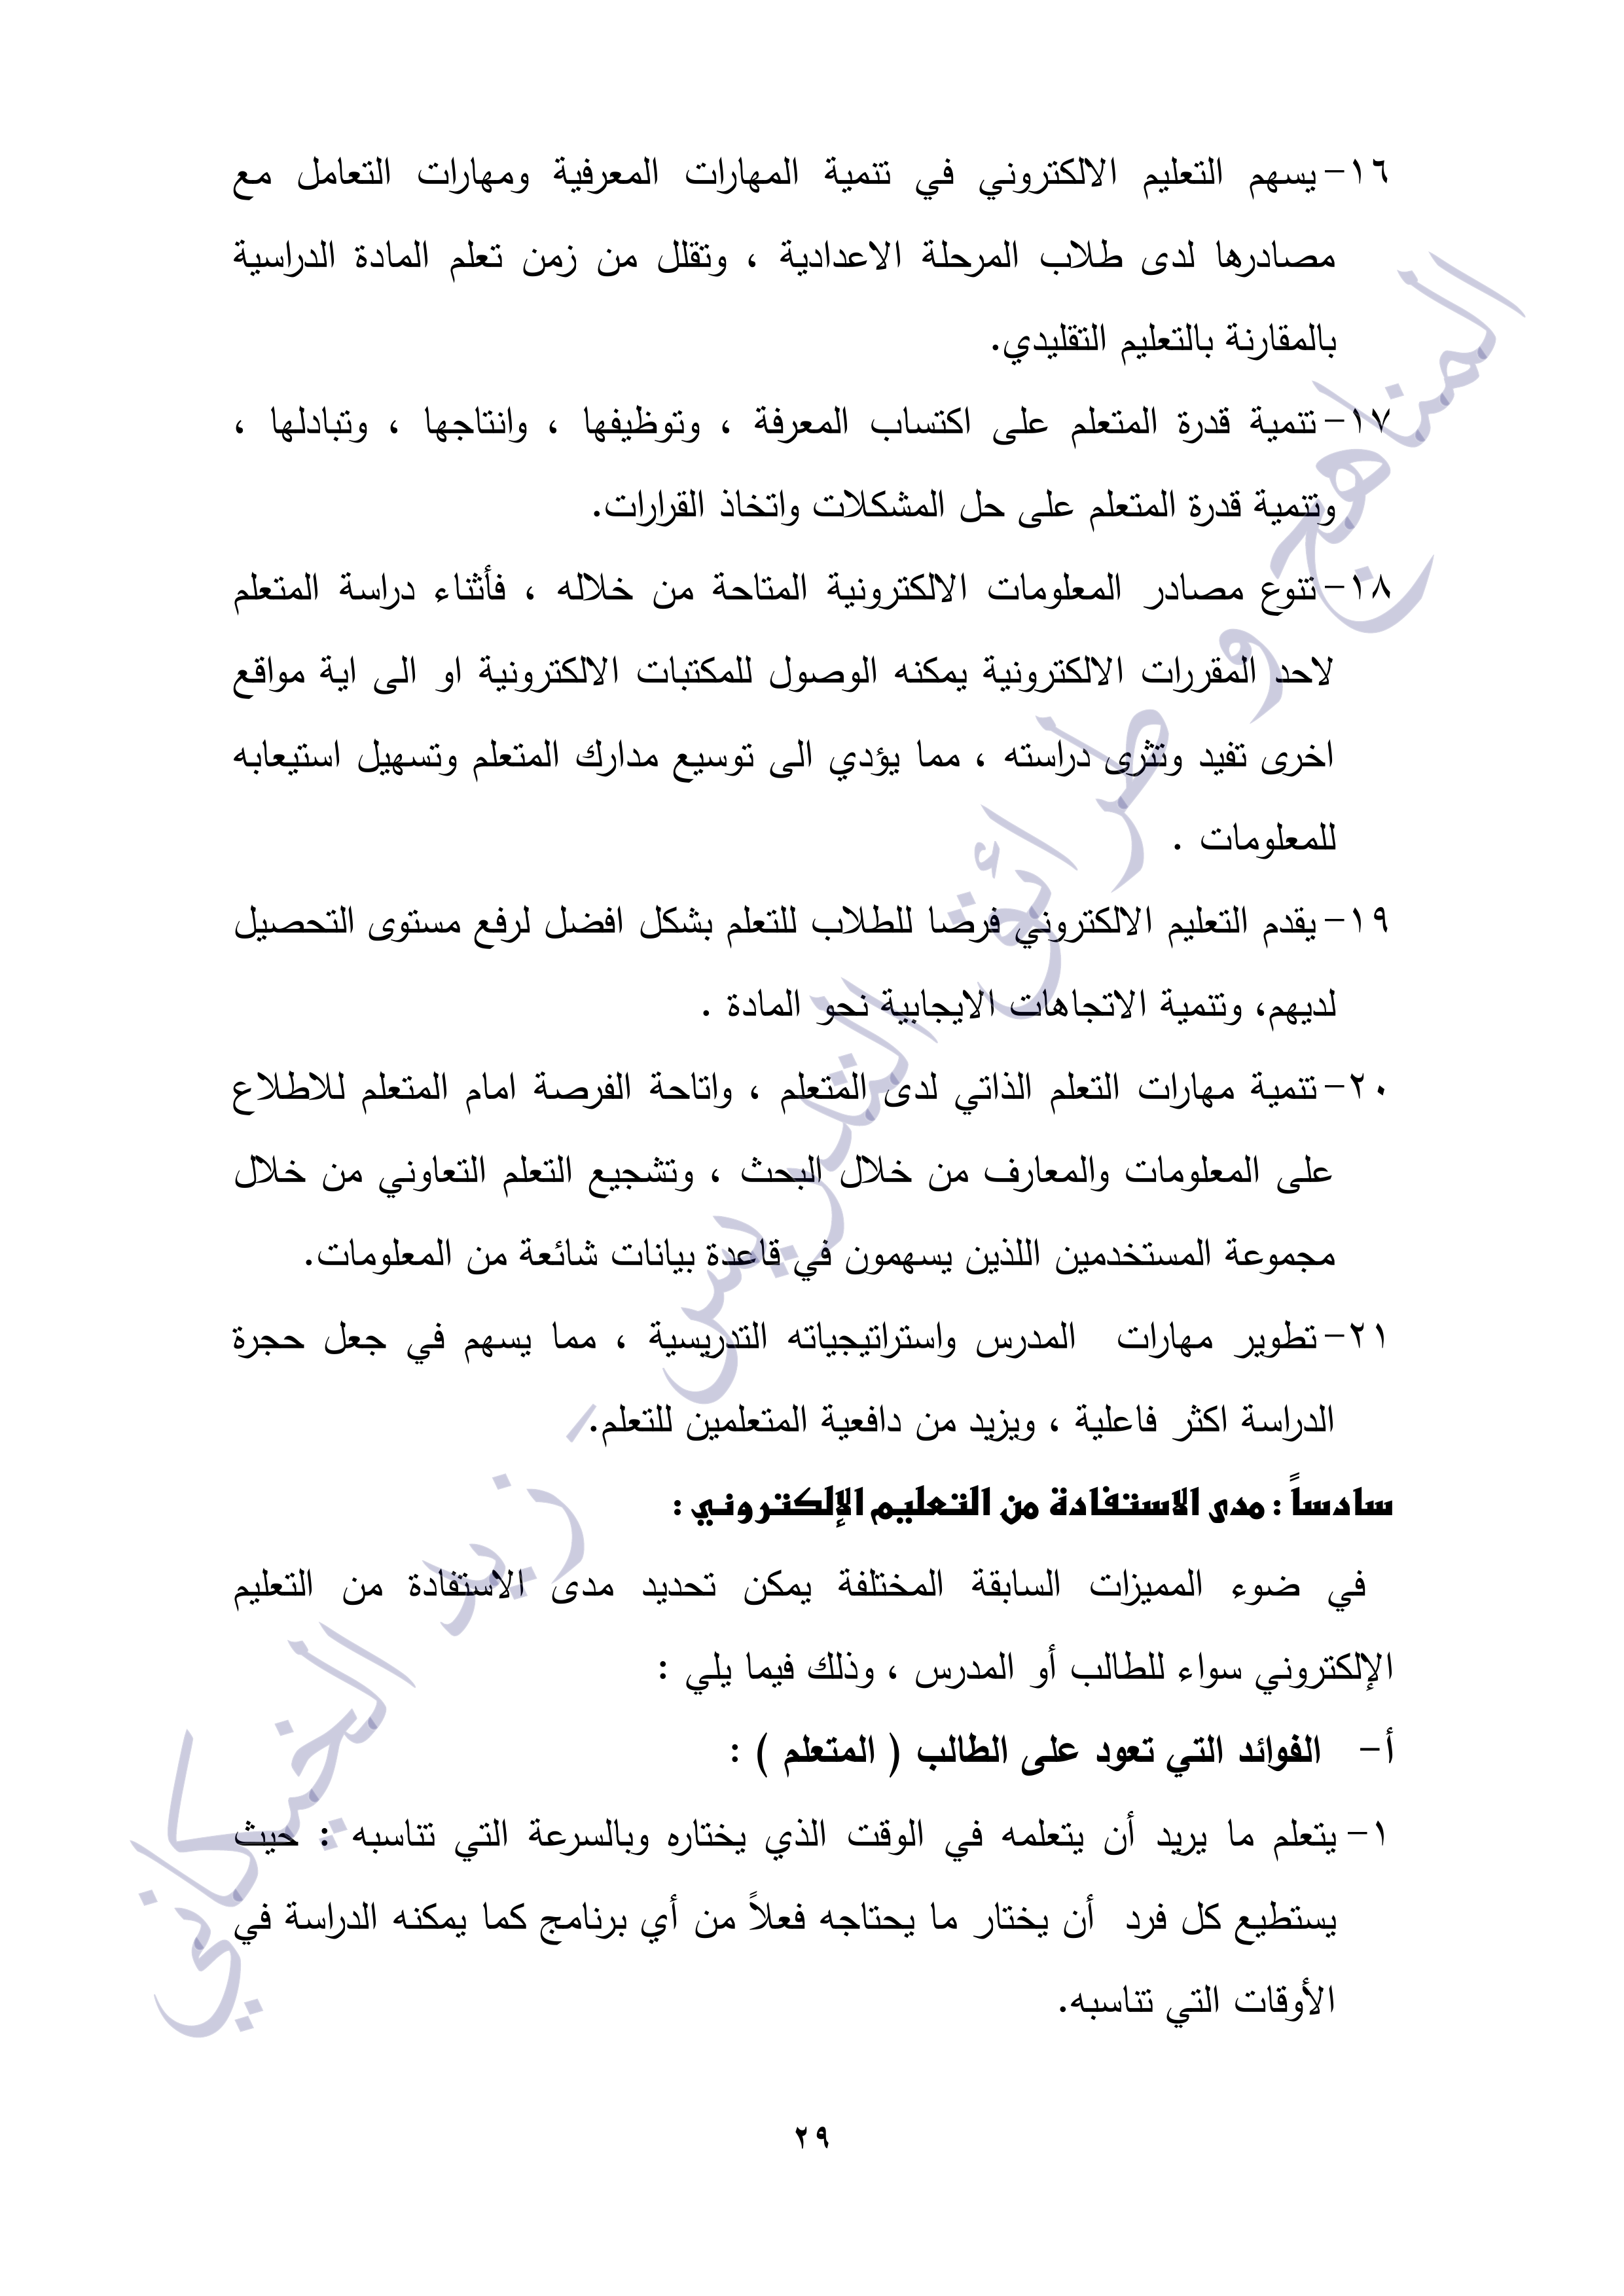 ١٦- يسهم التعليم الالكتروني في تنمية المهارات المعرفية ومهارات التعامل مع
مصادرها لدى طلاب المرحلة الاعدادية ، وتقلل من زمن تعلم المادة الدراسية
بالمقارنة بالتعليم التقليدي.
١٧- تنمية قدرة المتعلم على اكتساب المعرفة ، وتوظيفها ، وانتاجها ، وتبادلها ،
وتنمية قدرة المتعلم على حل المشكلات واتخاذ القرارات.
١٨- تنوع مصادر المعلومات الالكترونية المتاحة من خلاله ، فأثناء دراسة المتعلم
لاحد المقررات الالكترونية يمكنه الوصول للمكتبات الالكترونية او الى اية مواقع
اخرى تفيد وتثرى دراسته ، مما يؤدي الى توسيع مدارك المتعلم وتسهيل استيعابه
للمعلومات .
١٩- يقدم التعليم الالكتروني فرصا للطلاب للتعلم بشكل افضل لرفع مستوى التحصيل
لديهم، وتنمية الاتجاهات الايجابية نحو المادة .
٢٠- تنمية مهارات التعلم الذاتي لدى المتعلم ، واتاحة الفرصة امام المتعلم للاطلاع
على المعلومات والمعارف من خلال البحث ، وتشجيع التعلم التعاوني من خلال
مجموعة المستخدمين اللذين يسهمون في قاعدة بيانات شائعة من المعلومات.
٢١- تطوير مهارات المدرس واستراتيجياته التدريسية ، مما يسهم في جعل حجرة
الدراسة اكثر فاعلية ، ويزيد من دافعية المتعلمين للتعلم.
سادساً : مدى الاستفادة من التعليم الإلكتروني :
في ضوء المميزات السابقة المختلفة يمكن تحديد مدى الاستفادة من التعليم
الإلكتروني سواء للطالب أو المدرس ، وذلك فيما يلي :
أ- الفوائد التي تعود على الطالب ( المتعلم ) :
١- يتعلم ما يريد أن يتعلمه في الوقت الذي يختاره وبالسرعة التي تناسبه : حيث
يستطيع كل فرد أن يختار ما يحتاجه فعلاً من أي برنامج كما يمكنه الدراسة في
الأوقات التي تناسبه.
٢٩
المناهج وطرائق التدريس - زيد الخيكاني